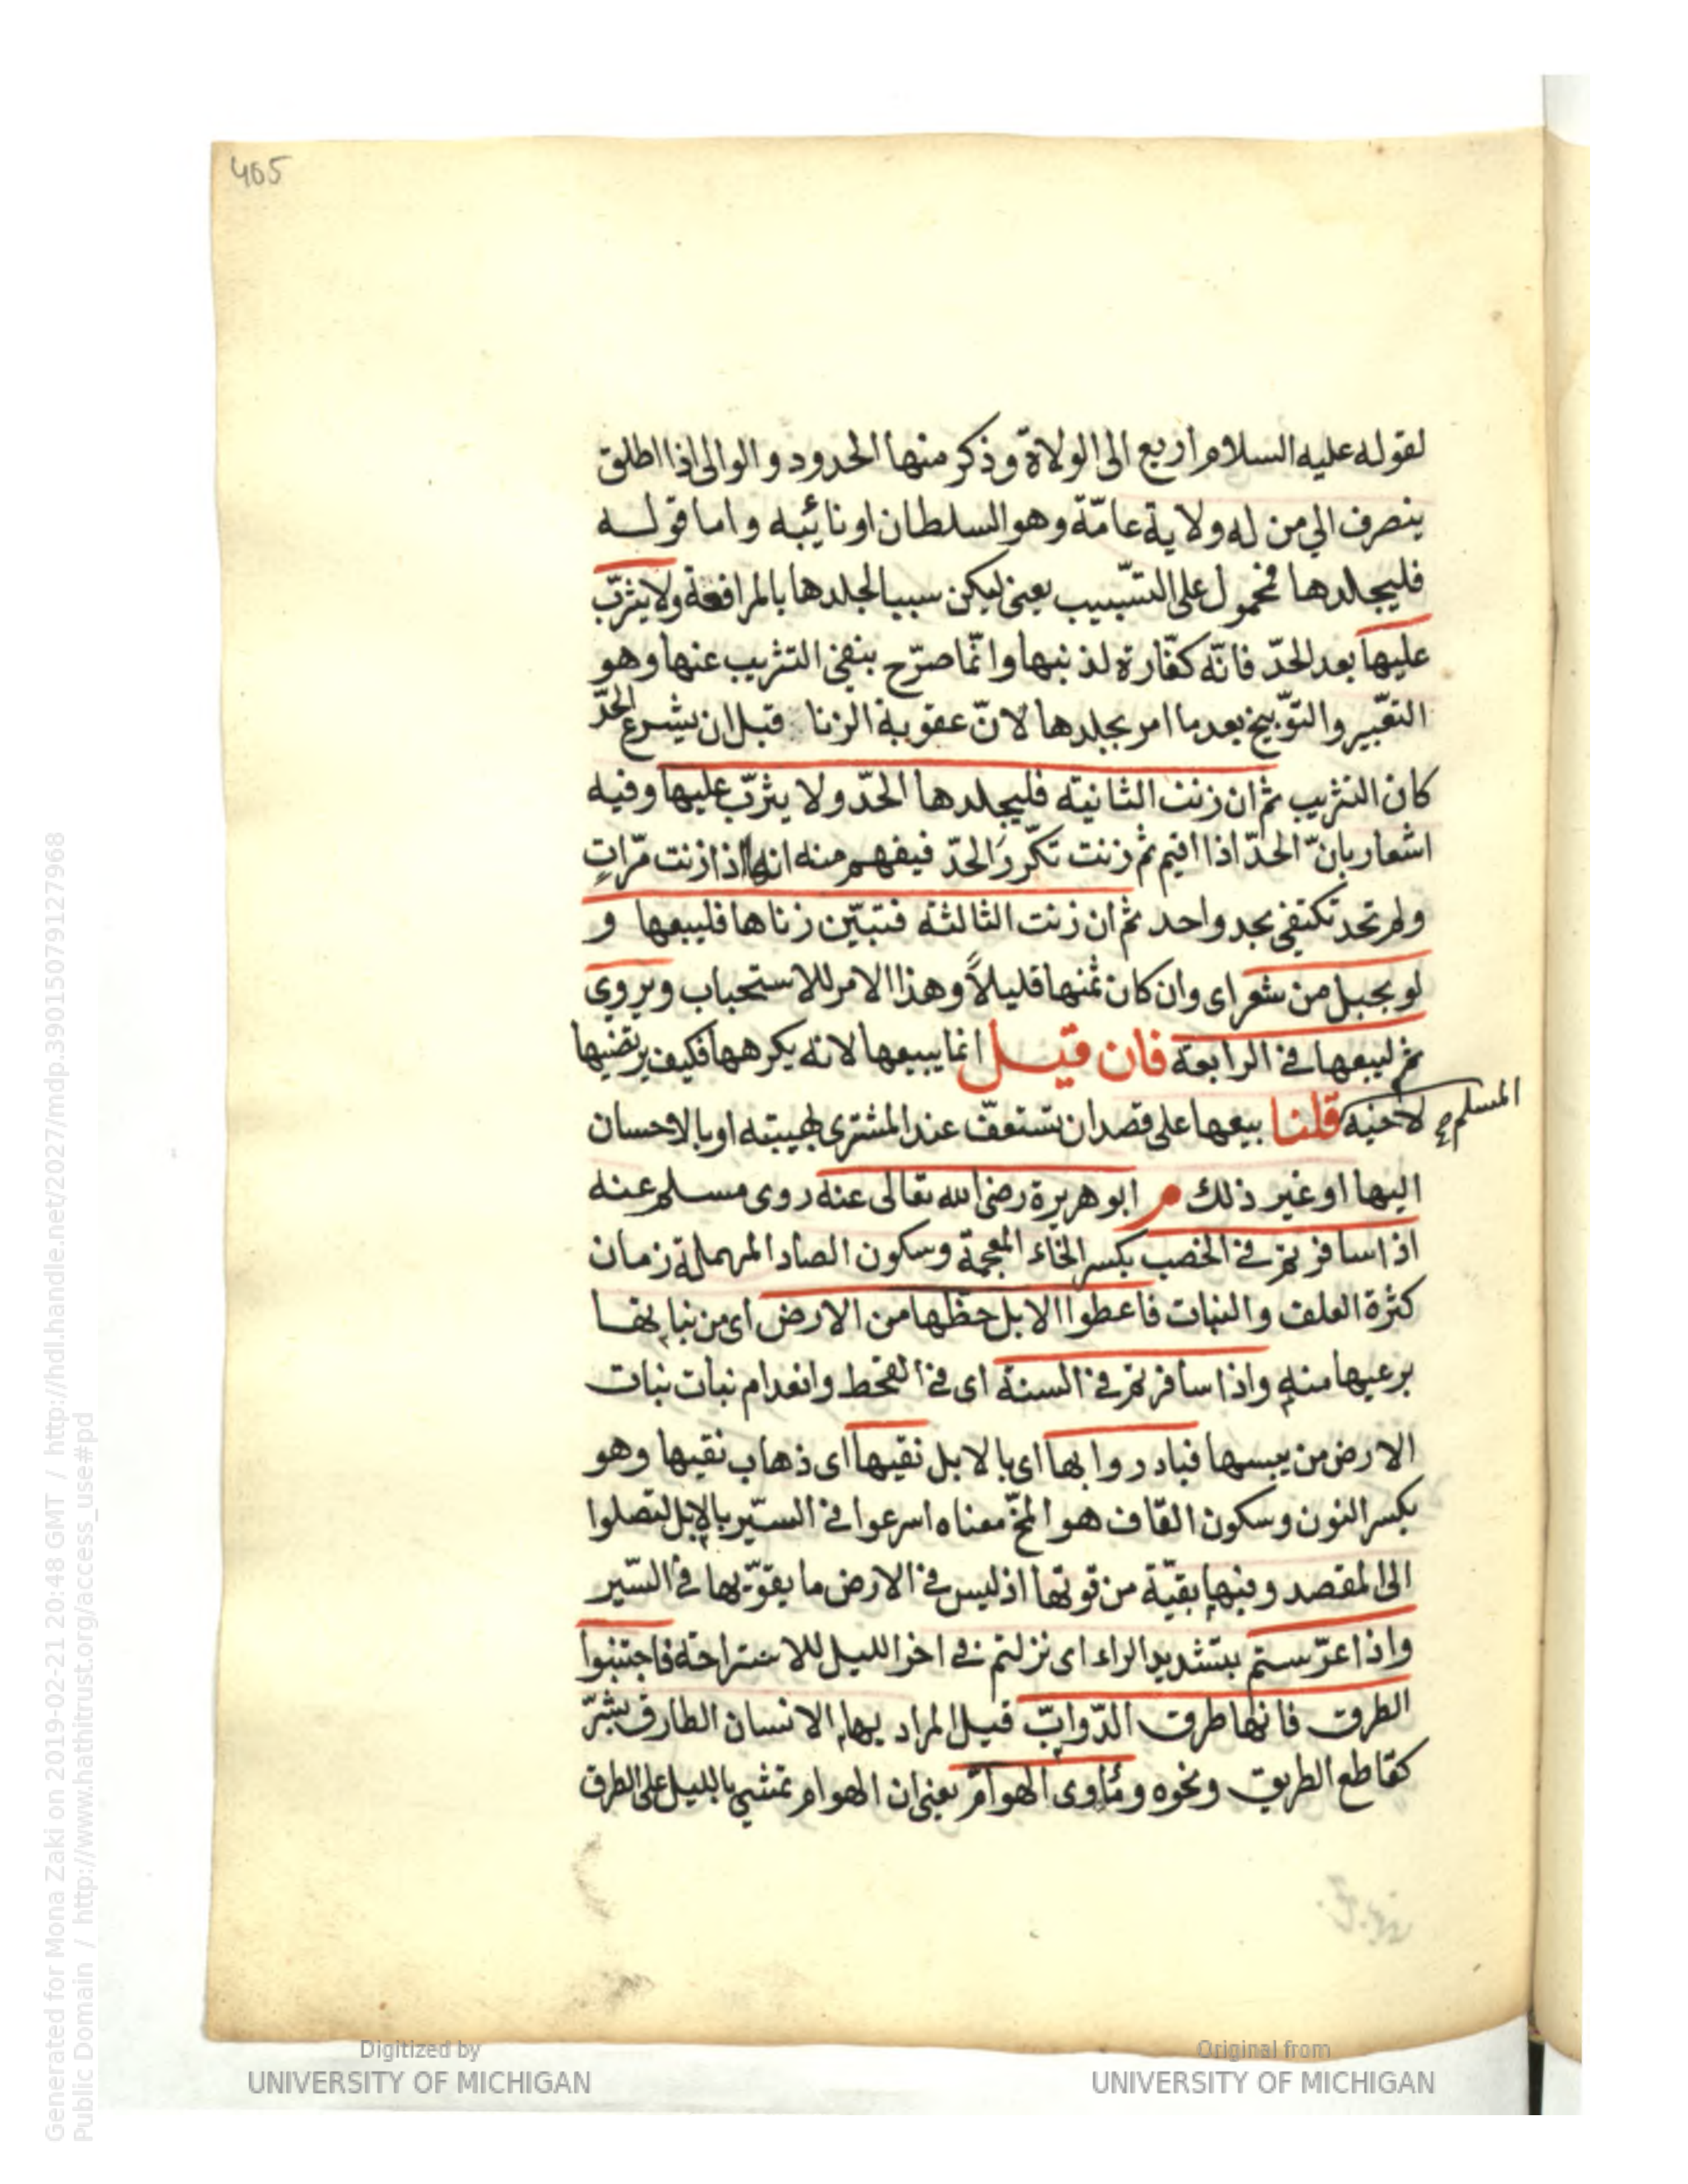 405
لقوله عليه السلام اربع الى الولاة وذكر منها الحدود والوالى اذا اطلق
ينصرف الي من له ولاية عامّة وهو السلطان او نائبه واما قوله
فليجلدها فمحمول على التسبيب يعنى ليكن سببا لجلدها بالمرافعة ولا يثرّب
عليها بعد الحدّ فانّه كفّارة لذنبها وانّما صرّح بنفى التثريب عنها وهو
التعيير والتوّبيخ بعد ما امر بجلدها لانّ عقوبة الزنا قبل ان يشرع الحدّ
كان التثريب ثم ان زنت الثانية فليجلدها الحدّ ولا يثرّب عليها وفيه
اشعار بانّ الحدّ اذا اقيم ثم زنت تكرّر الحدّ فيفهم منه انها اذا زنت مرّاتٍ
ولم تحد تكتفى بحد واحد ثم ان زنت الثالثة فتبيّن زناها فليبعها و
لو بحبل من شعر اى وان كان ثمنها قليلاً وهذا الامر للاستحباب ويروى
ثم ليبعها فى الرابعة فان قيل انما يبيعها لانه يكرهها فكيف يرتضيها
لاخيه المسلم قلنا بيعها على قصد ان تستعفّ عند المشترى لهيبته او بالاحسان
اليها او غير ذلك م ابو هريرة رضى الله تعالى عنه روى مسلم عنه
اذا سافرتم فى الخصب بكسر الخاء المعجمة وسكون الصاد المهملة زمان
كثرة العلف والنبات فاعطوا الابل حظها من الارض اى من نباتها
برعيها منه واذا سافرتم فى السنة اى فى القحط وانعدام نبات نبات
الارض من يبسها فبادروا بها اى بالابل نقيها اى ذهاب نقيها وهو
بكسر النون وسكون القاف هو المخّ معناه اسرعوا فى السّير بالابل لتصلوا
الى المقصد وفيها بقيّة من قوتها اذ ليس فى الارض ما يقوّيها فى السّير
واذا عرّستم بتشديد الراء اى نزلتم فى اخر الليل للاستراحة فاجتنبوا
الطرق فانها طرق الدّوابّ قيل المراد بها الانسان الطارق بشرّ
كقاطع الطريق ونحوه ومأوى الهوامّ يعنى ان الهوام تمشي بالليل على الطرق
Generated for Mona Zaki on 2019-02-21 20:48 GMT / http://hdl.handle.net/2027/mdp.39015079127968
Public Domain / http://www.hathitrust.org/access_use#pd
Digitized by
UNIVERSITY OF MICHIGAN
Original from
UNIVERSITY OF MICHIGAN